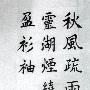 秋風疏雨
靈湖煙繞
盈衫袖